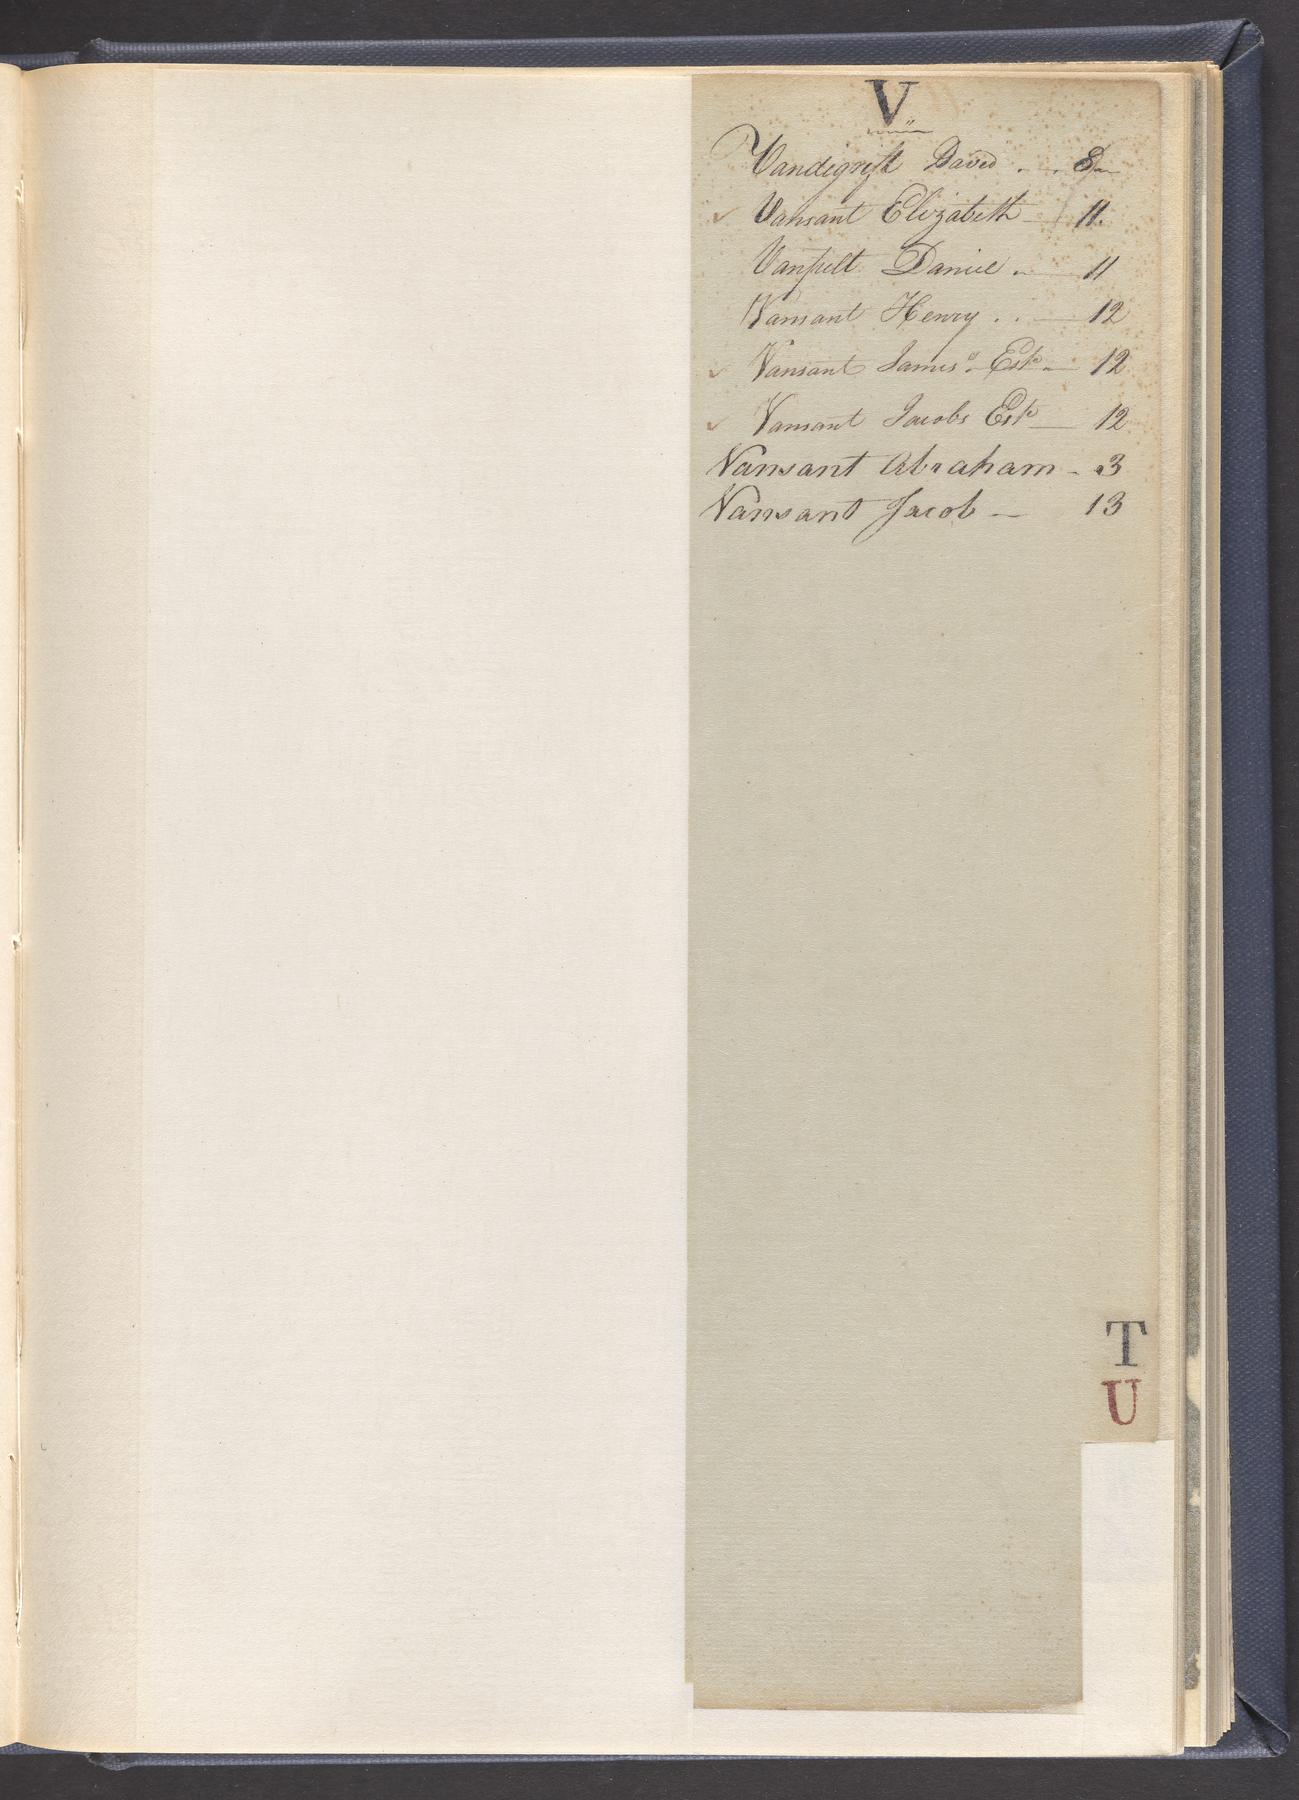 V
Vandigrift David . . 8
Vansant Elizabeth 11.
Vanpelt Daniel . 11
Vansant Henry . . 12
Vansant James's Este 12
Vansant Jacobs Este 12
Vansant Abraham - 3
Vansant Jacob — 13
T
U